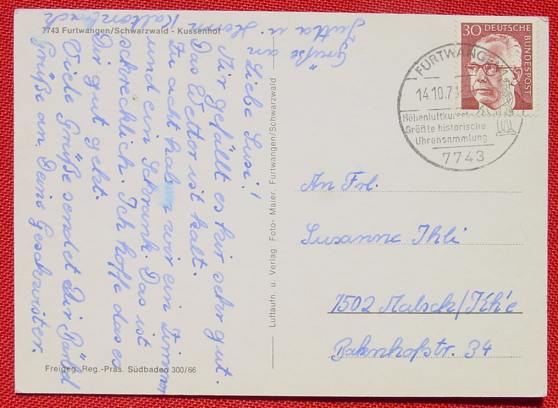 7743 Furtwangen/Schwarzwald - Kussenhof
Liebe Susi!
Mir gefällt es hir sehr gut.
Das Wetter ist kalt.
Zu acht haben wir ein Zimmer
und ein Schrank. Das ist
schrecklich. Ich hoffe das es
Dir gut geht.
Viele Grüße sendet Dir
Grüße an Deine Geschwister.
Grüße an
Jutta u.
Luftaufn. u. Verlag Foto- Maier, Furtwangen/Schwarzwald
Freigeg. Reg.-Präs. Südbaden 300/66
30 DEUTSCHE BUNDESPOST
FURTWANGEN
14.10.7
Höhenluftkurort
Größte historische
Uhrensammlung
7743
An Frl.
Susanne Ihli
7502 Malsch/Kh'e
Bahnhofstr. 34